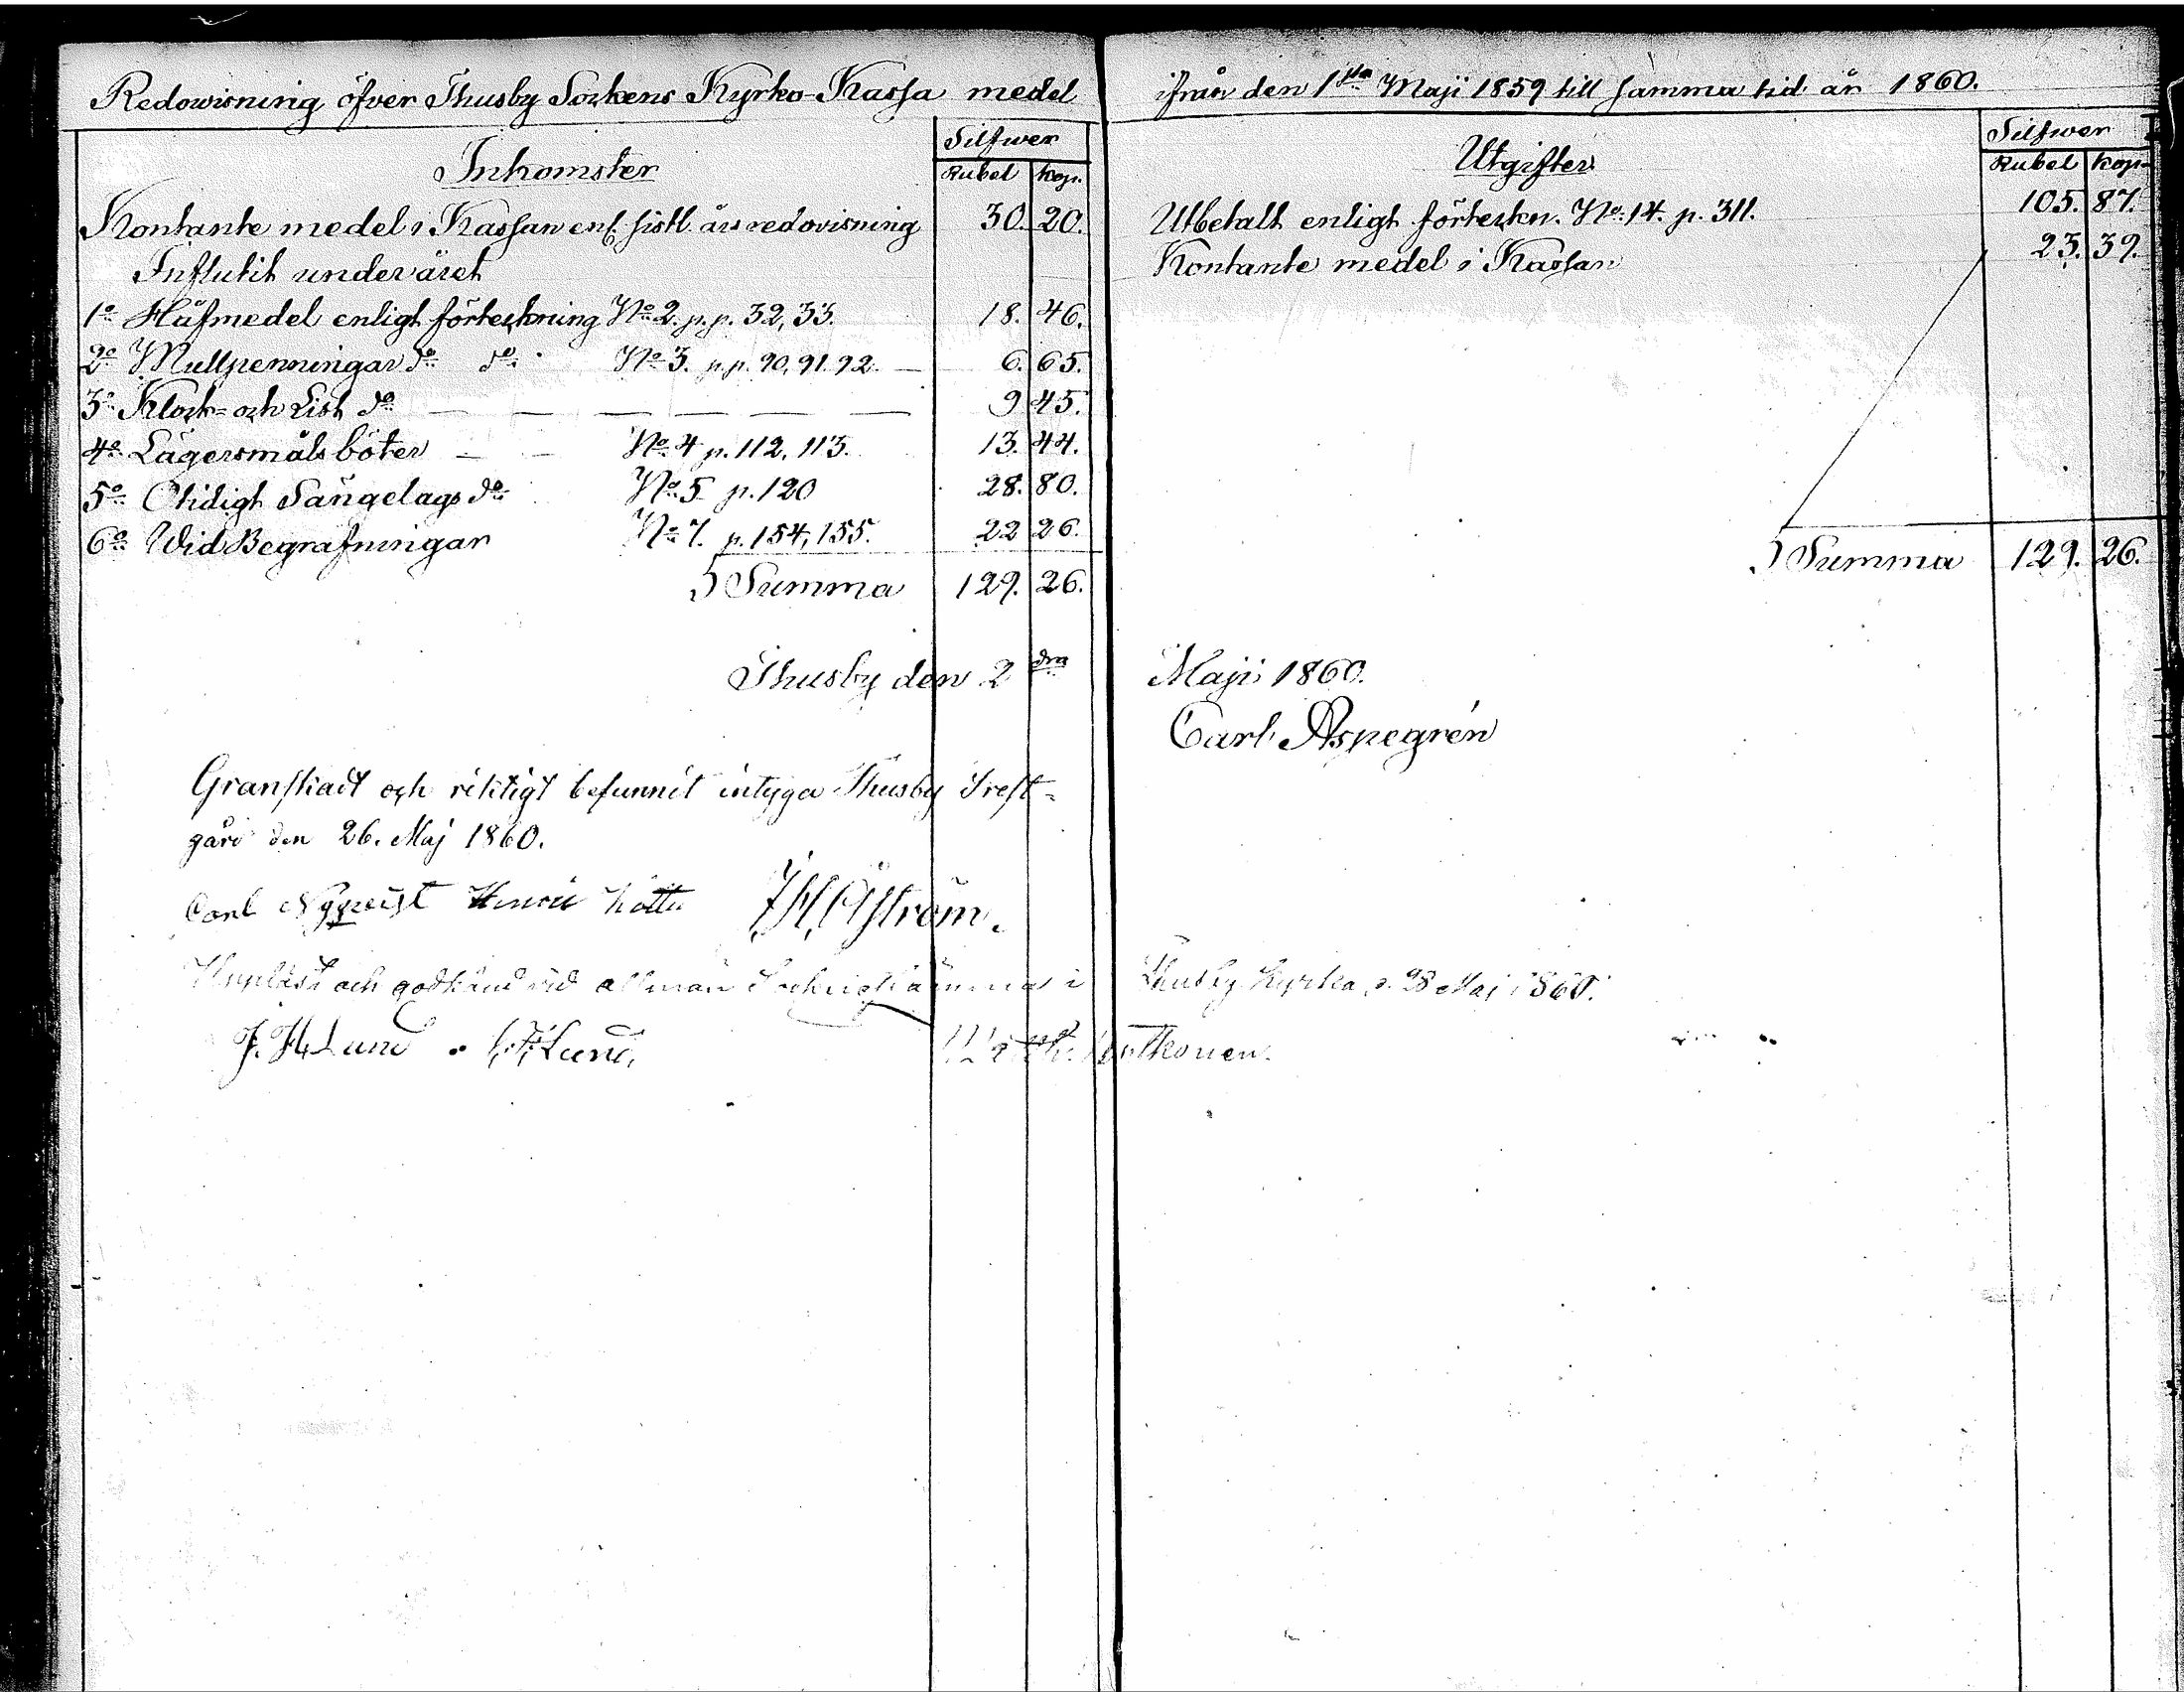 Redowisning öfver Thusby Sockens Kyrko-Kassa medel
Inkomster
Silfwer
Rubel kop.
Kontante medel i Kassan enl. sistl. års redovisning 30. 20.
Influtit under året
1o Håfmedel enligt förteckning No 2. p.p. 32, 33. 18. 46.
2o Mullpenningar do do No 3. p.p. 90, 91. 92. — 6. 65.
3o Klock- och List do — — — — — — 9 45.
4o Lägersmåls böter — — No 4 p. 112, 113. 13. 44.
5o Otidigt Sängelags do No 5 p. 120 28. 80.
6o Wid Begrafningar No 7. p. 154, 155. 22 26.
Summa 129. 26.
Thusby den 2dra
Granskadt och riktigt befunnit intyga Thusby Prest-
gård den 26. Maj 1860.
Carl Nyqvist Henric
Öström.
och godkänd vid allmän Sockenstämma i
J. H. Lund Lund,
ifrån den 1sta Maji 1859 till samma tid år 1860.
Utgifter
Silfwer
Rubel kop.
Utbetalt enligt förteckn. No 14. p. 311. 105. 87.
Kontante medel i Kassan 23. 39.
Summa 129. 26.
Maji 1860.
Carl Aspegrén
Thusby Kyrka d. 28 Maj 1860.